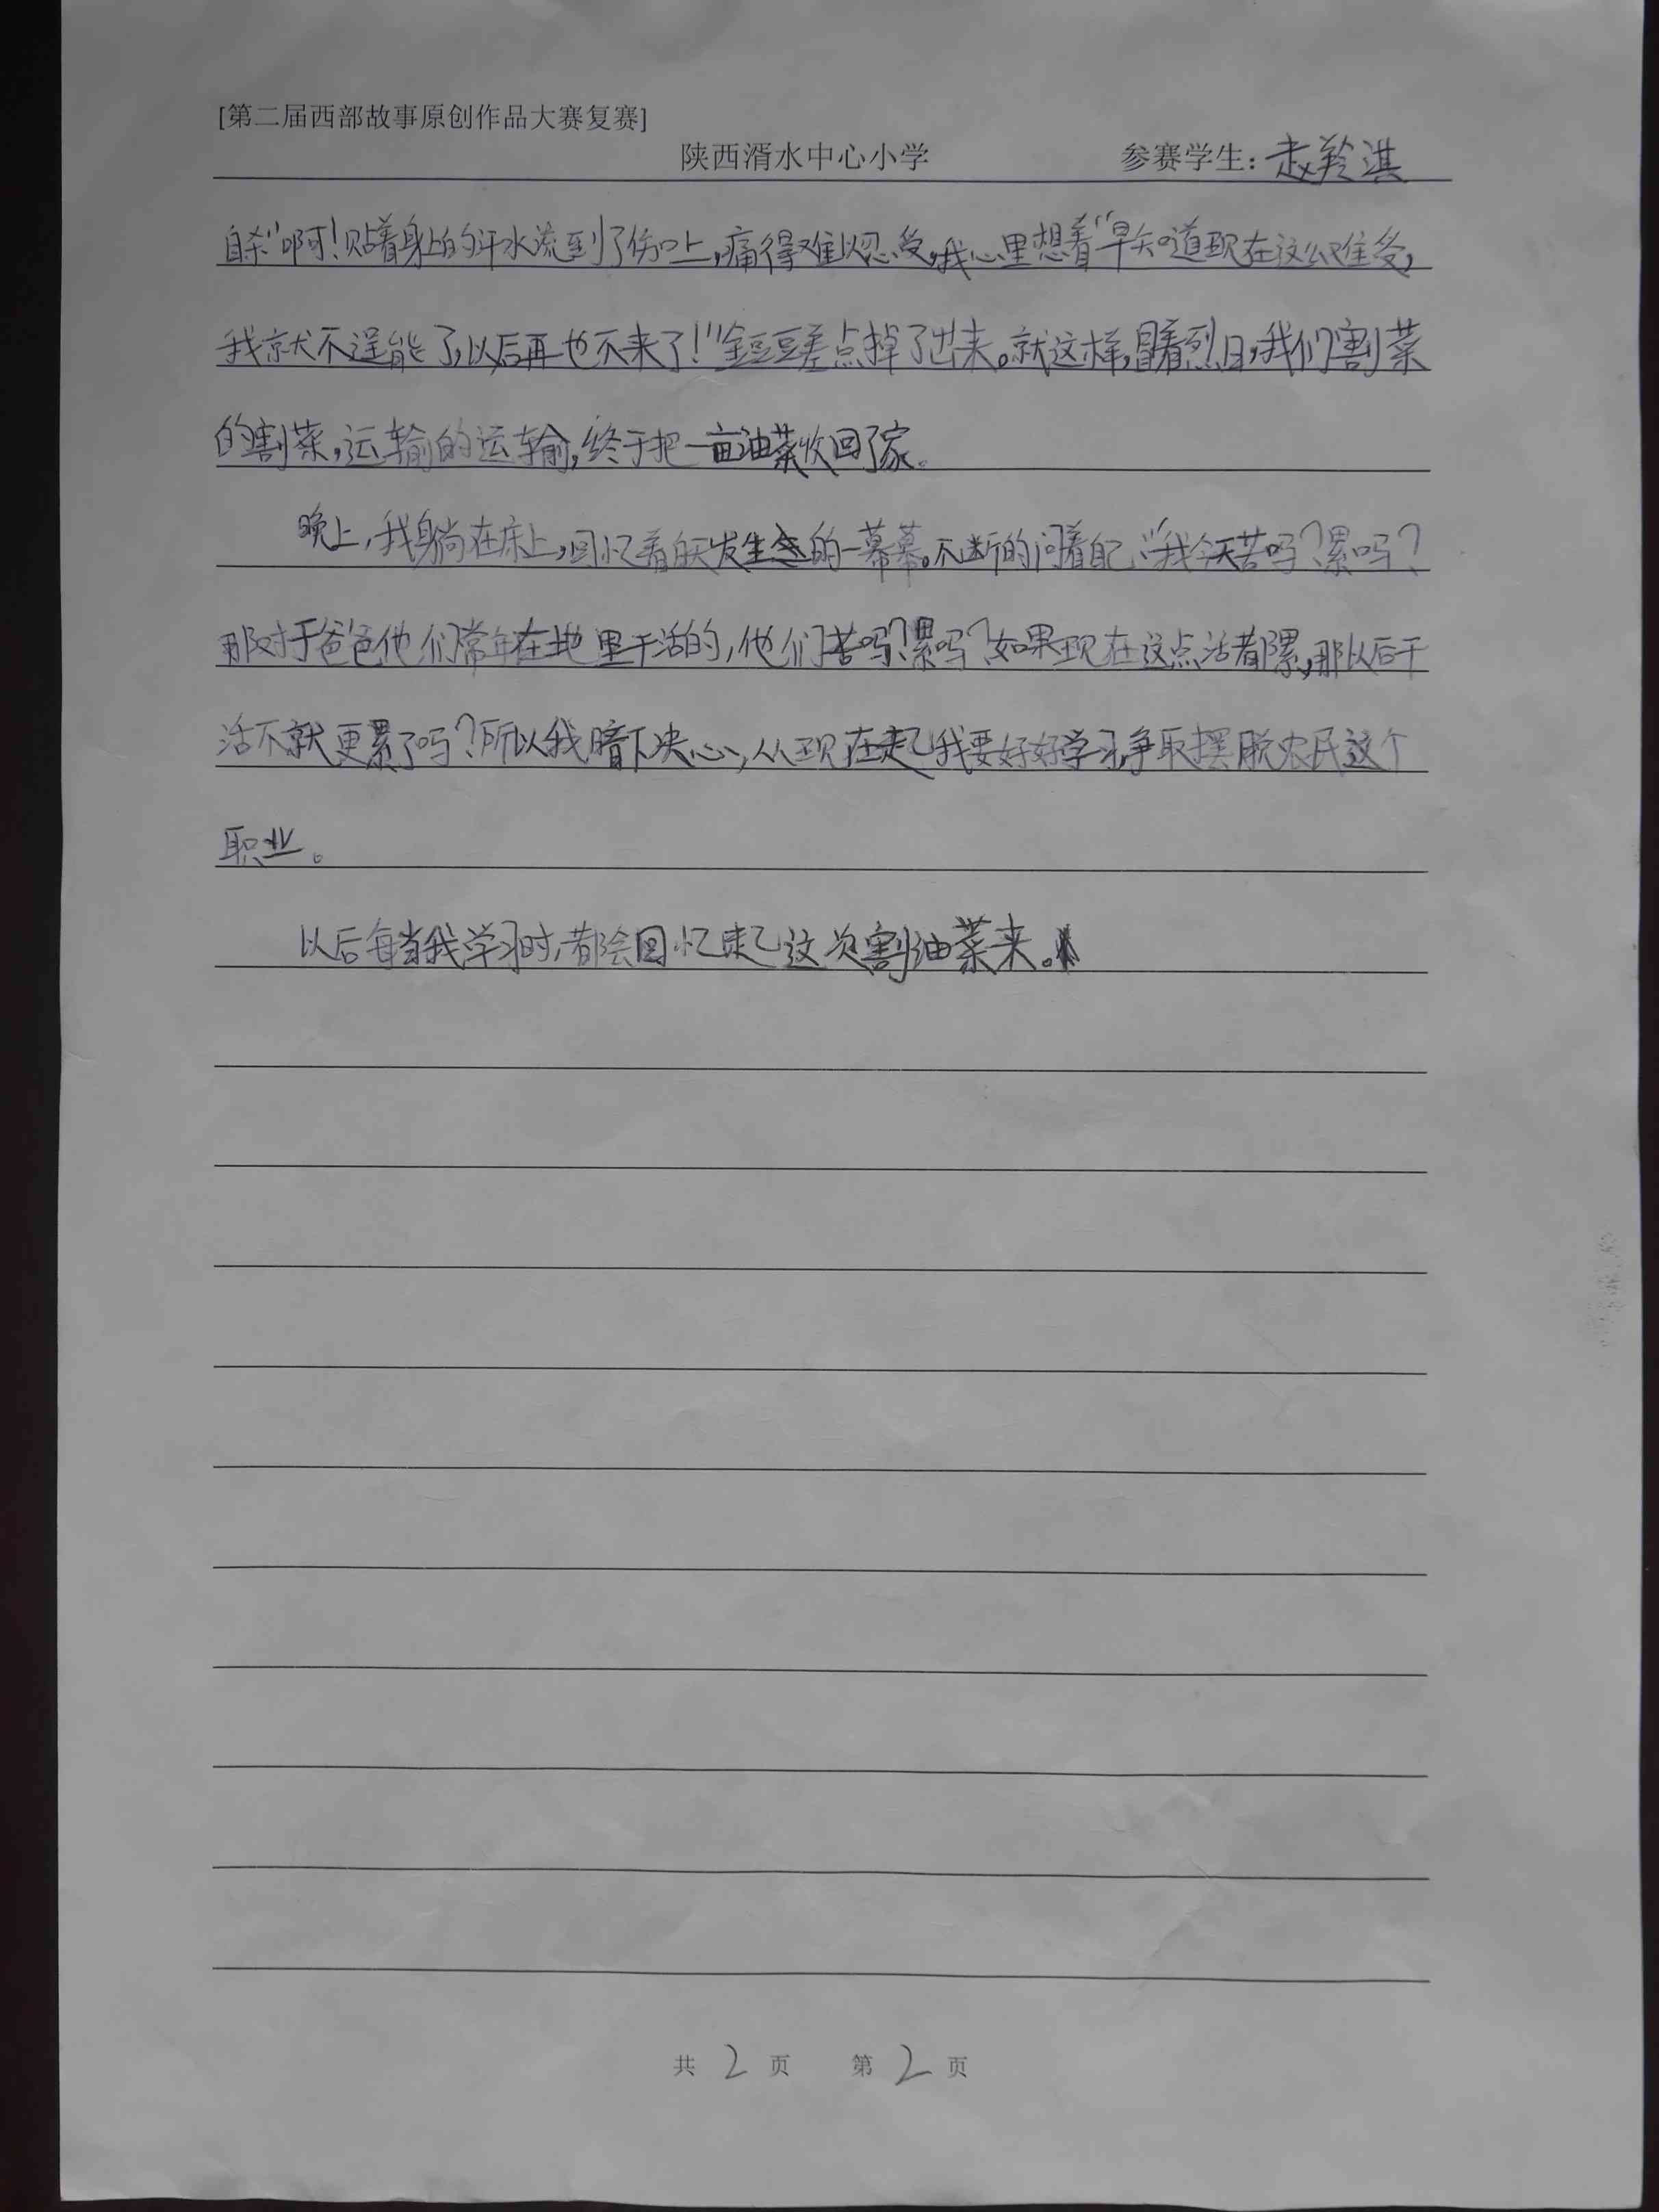 [第二届西部故事原创作品大赛复赛]
陕西湑水中心小学 参赛学生：赵羚淇
自杀”啊！贴着身上的汗水流到了伤口上，痛得难以忍受，我心里想着“早知道现在这么难受，
我就不逞能了，以后再也不来了！”金豆豆差点掉了出来。就这样，冒着烈日，我们割菜
的割菜，运输的运输，终于把一亩油菜收回了家。
晚上，我躺在床上，回忆着白天发生的一幕幕。不断的问着自己，“我今天苦吗？累吗？
那对于爸爸他们常年在地里干活的，他们苦吗？累吗？如果现在这点活都累，那以后干
活不就更累了吗？所以我暗下决心，从现在起我要好好学习，争取摆脱农民这个
职业。
以后每当我学习时，都会回忆起这次割油菜来。
共 2 页 第 2 页